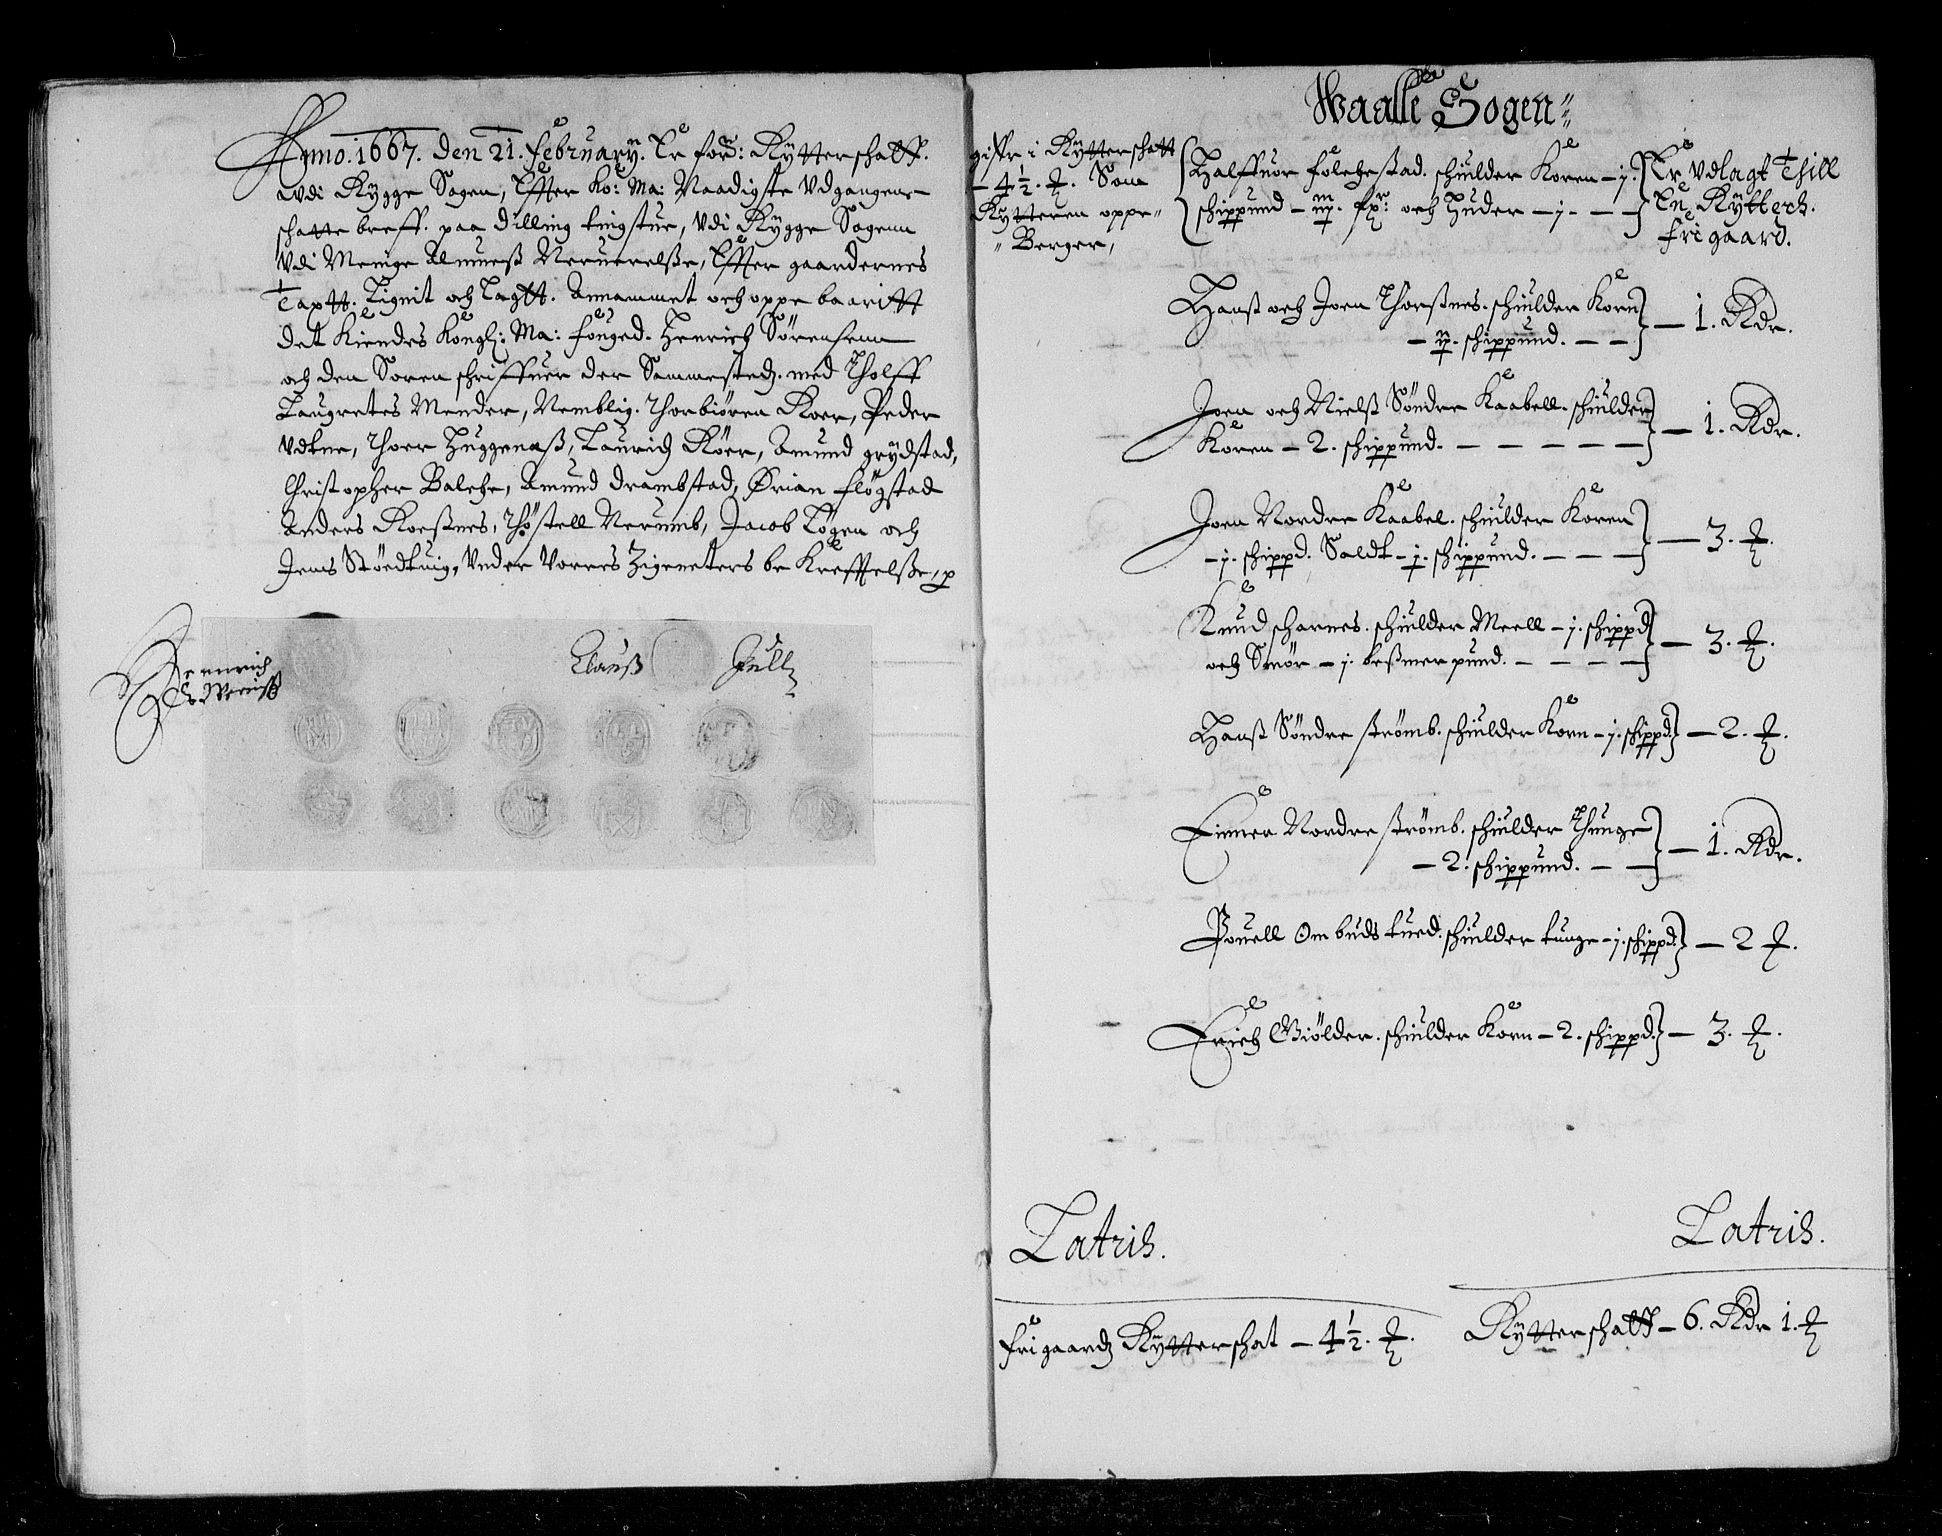 Anno. 1667. den 21. february. Er ford: Rÿtterschatt.
wdi Rÿgge Sogen, Effter Ko: Ma: Naadigste Vdgangene
schatte breff. paa Dilling tingstue, Vdi Rÿgge Sogenn
Vdi Menige Almueß Neruerelße, Effter gaardernes
Taxtt. Lignit och Lagtt. Annammet och oppe baaritt
det Kiendes Kongl: Ma: fouged. Henrich Sørensenn
och den Soren schriffuer der Sammestedz. med Tholff
Laugretes Mender, Nemblig. Thorbiören Roer, Peder
Vdtne, Thoer Huggenæß, Lauridz Röer, Amund grÿdstad,
Christopher Balche, Amund Drambstad, Ørian flögstad
Anders Roeßnes, Thöstell Verumb, Jacob Lögen och
Jens Stöedtuig, Vnder Vorres Zigeneters be Krefftelße, p
Hennrich
Clauß Jull
Waalle Sogen
giffr i Rÿtterschatt
– 4½. Som
Rÿtteren oppe
Berger,
Halffuor folchestad. schulder Koren – j.
schippund – och Huder – j. – –
Er Vdlagt Thill
En Rÿtterh.
frigaard.
Hanß och Joen Thorßnes. schulder Korn
– schippund. – – – 1. Rdr.
Joen och Nielß Söndre Kaabell. schulder
Koren – 2. schippund. – – – – – – 1. Rdr.
Joen Nordre Kaabel. schulder Koren
– j. schippd. Saldt – j. schippund. – – – – 3.
Knud scharnes. schulder Meell – j. schippd
och Smör – j. beßmer pund. – – – – – 3.
Hanß Söndre strömb. schulder Korn – j. schippd. – 2.
Einer Nordre ströomb. schulder Thunge
– 2. schippund. – – – 1. Rdr.
Pouell Ombudstued. schulder tunge – j. schippd. – 2
Erich Giölder. schulder Korn – 2. schippd. – 3.
Latris.
Latris.
frigaardz Rÿtterschat – 4½.
Rÿtterschatt – 6. Rdr 1.